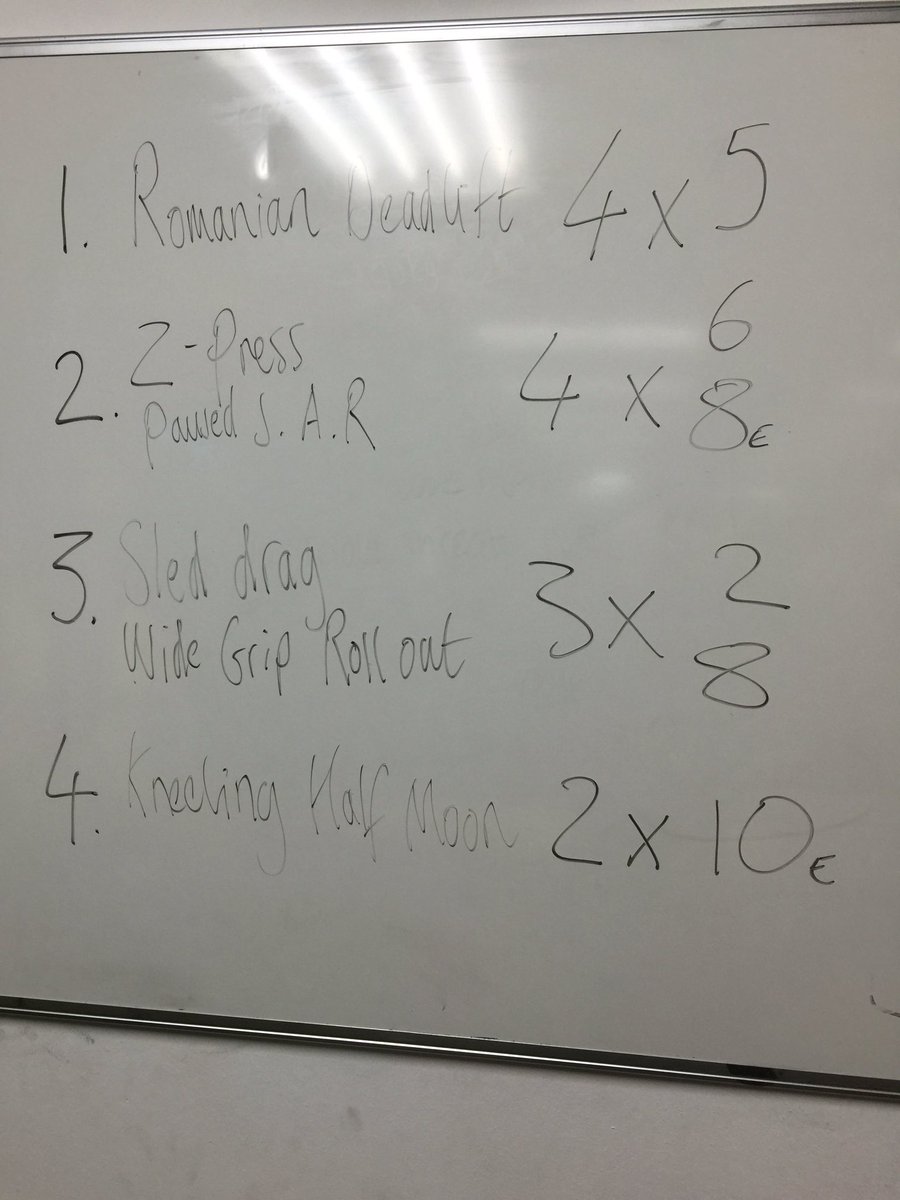 1. Romanian Deadlift 4 x 5
2. Z-Press 4 x 6
Paused S.A.R 8E
3. Sled drag 3 x 2
Wide Grip Roll out 8
4. Kneeling Half Moon 2 x 10E